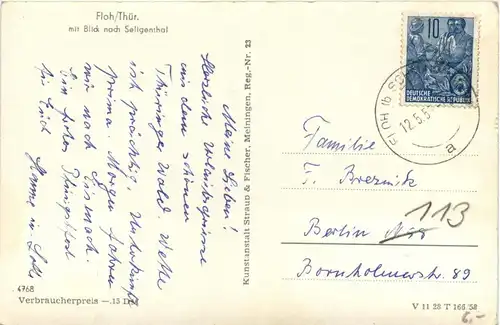 Floh/Thür.
mit Blick nach Seligenthal
Meine Lieben!
Herzliche Urlaubsgrüsse
aus dem schönen
Thüringer Wald. Wetter
ist prächtig, Unterkunft
prima. Morgen fahren
wir nach Eisenach.
Ein frohes Pfingstfest
für Euch
4768
Verbraucherpreis —.15 DM
Kunstanstalt Straub & Fischer, Meiningen, Reg.-Nr. 23
10
DEUTSCHE
DEMOKRATISCHE REPUBLIK
FLOH
12.5.5
a
Familie
F. Breznik
Berlin N
113
Bornholmerstr. 89
V 11 28 T 166/58
6,-